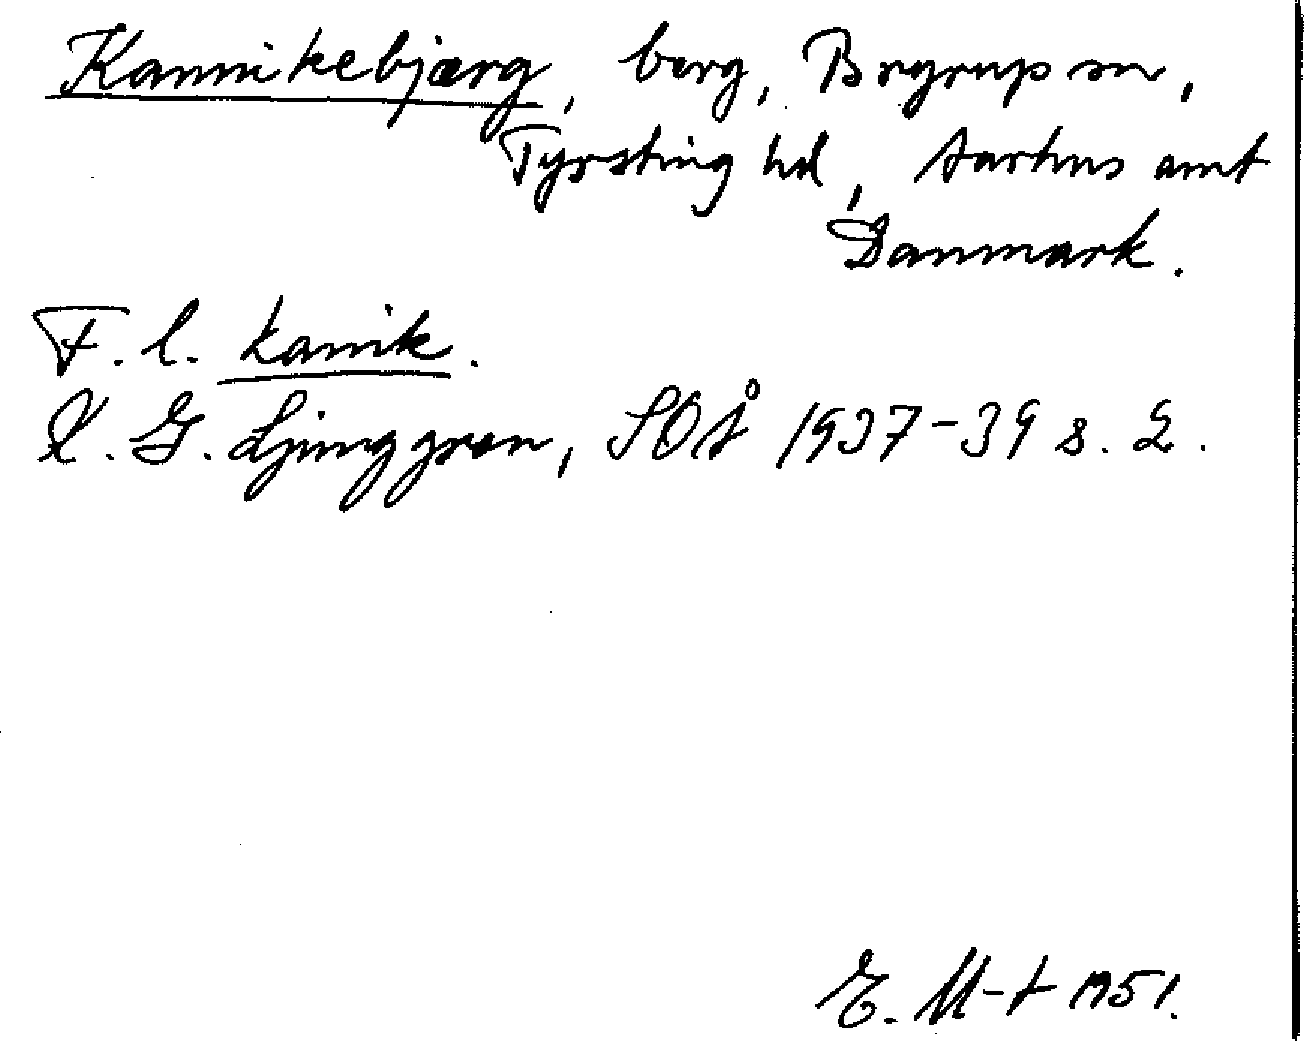 Kannikebjærg, berg, Bryrup sn,
Tyrsting hd, Aarhus amt
Danmark.
F. l. kanik.
K. G. Ljunggren, SOÅ 1937-39 s. 2.
E. M-t 1951.